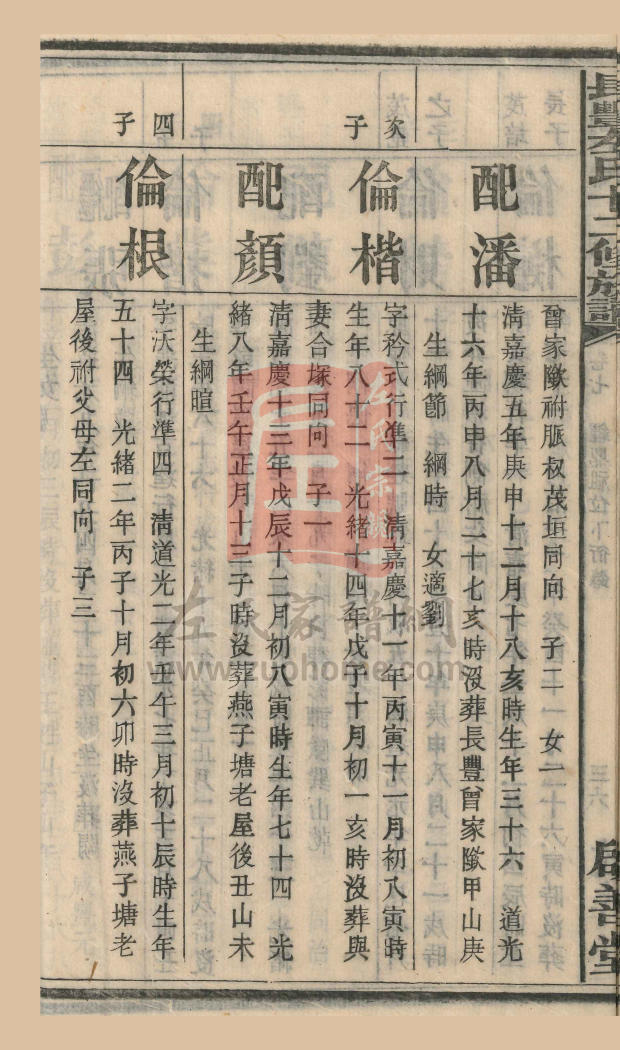 長豐左氏十二修族譜
卷七
三六
啟善堂
曾家隞祔脈叔茂垣同向 子二 女二
配潘
清嘉慶五年庚申十二月十八亥時生年三十六 道光
十六年丙申八月二十七亥時沒葬長豐曾家隞甲山庚
生綱節 綱時 女適劉
次子
倫楷
字矜式行準二 清嘉慶十一年丙寅十一月初八寅時
生年八十二 光緒十四年戊子十月初一亥時沒葬與
妻合塚同向 子一
配顏
清嘉慶十三年戊辰十二月初八寅時生年七十四 光
緒八年壬午正月十三子時沒葬燕子塘老屋後丑山未
生綱暄
四子
倫根
字沃榮行準四 清道光二年壬午三月初十辰時生年
五十四 光緒二年丙子十月初六卯時沒葬燕子塘老
屋後祔父母左同向 子三
左氏家譜網
www.zuohome.com